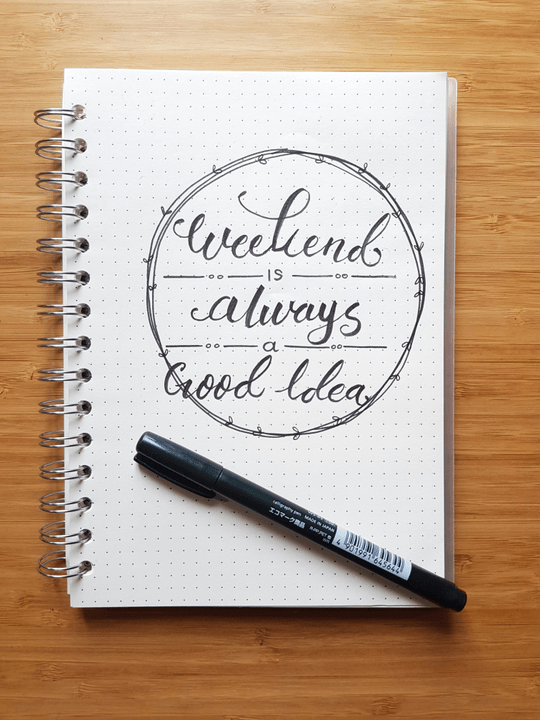 Weekend
is
always
a
Good Idea
calligraphy pen MADE IN JAPAN
エコマーク商品
4 901991 645644